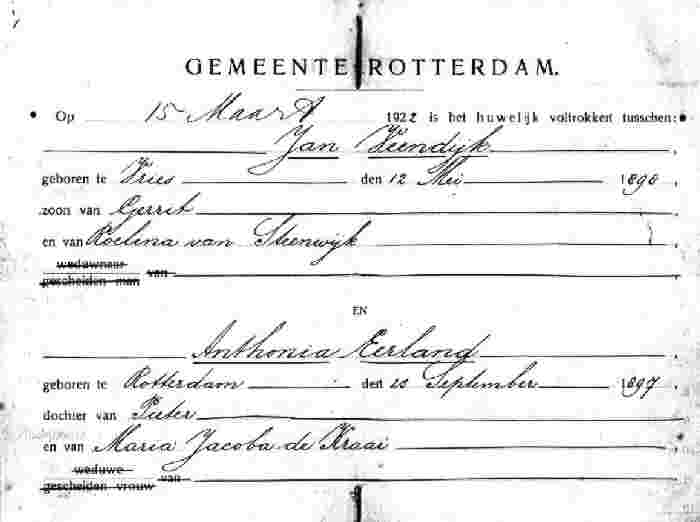 GEMEENTE ROTTERDAM.
Op 15 Maart 1922 is het huwelijk voltrokken tusschen:
Jan Veendijk
geboren te Vries den 12 Mei 1890
zoon van Gerrit
en van Roelina van Steenwijk
weduwnaar
gescheiden man van
EN
Anthonia Eerland
geboren te Rotterdam den 20 September 1897
dochter van Pieter
en van Maria Jacoba de Kraai
weduwe
gescheiden vrouw van